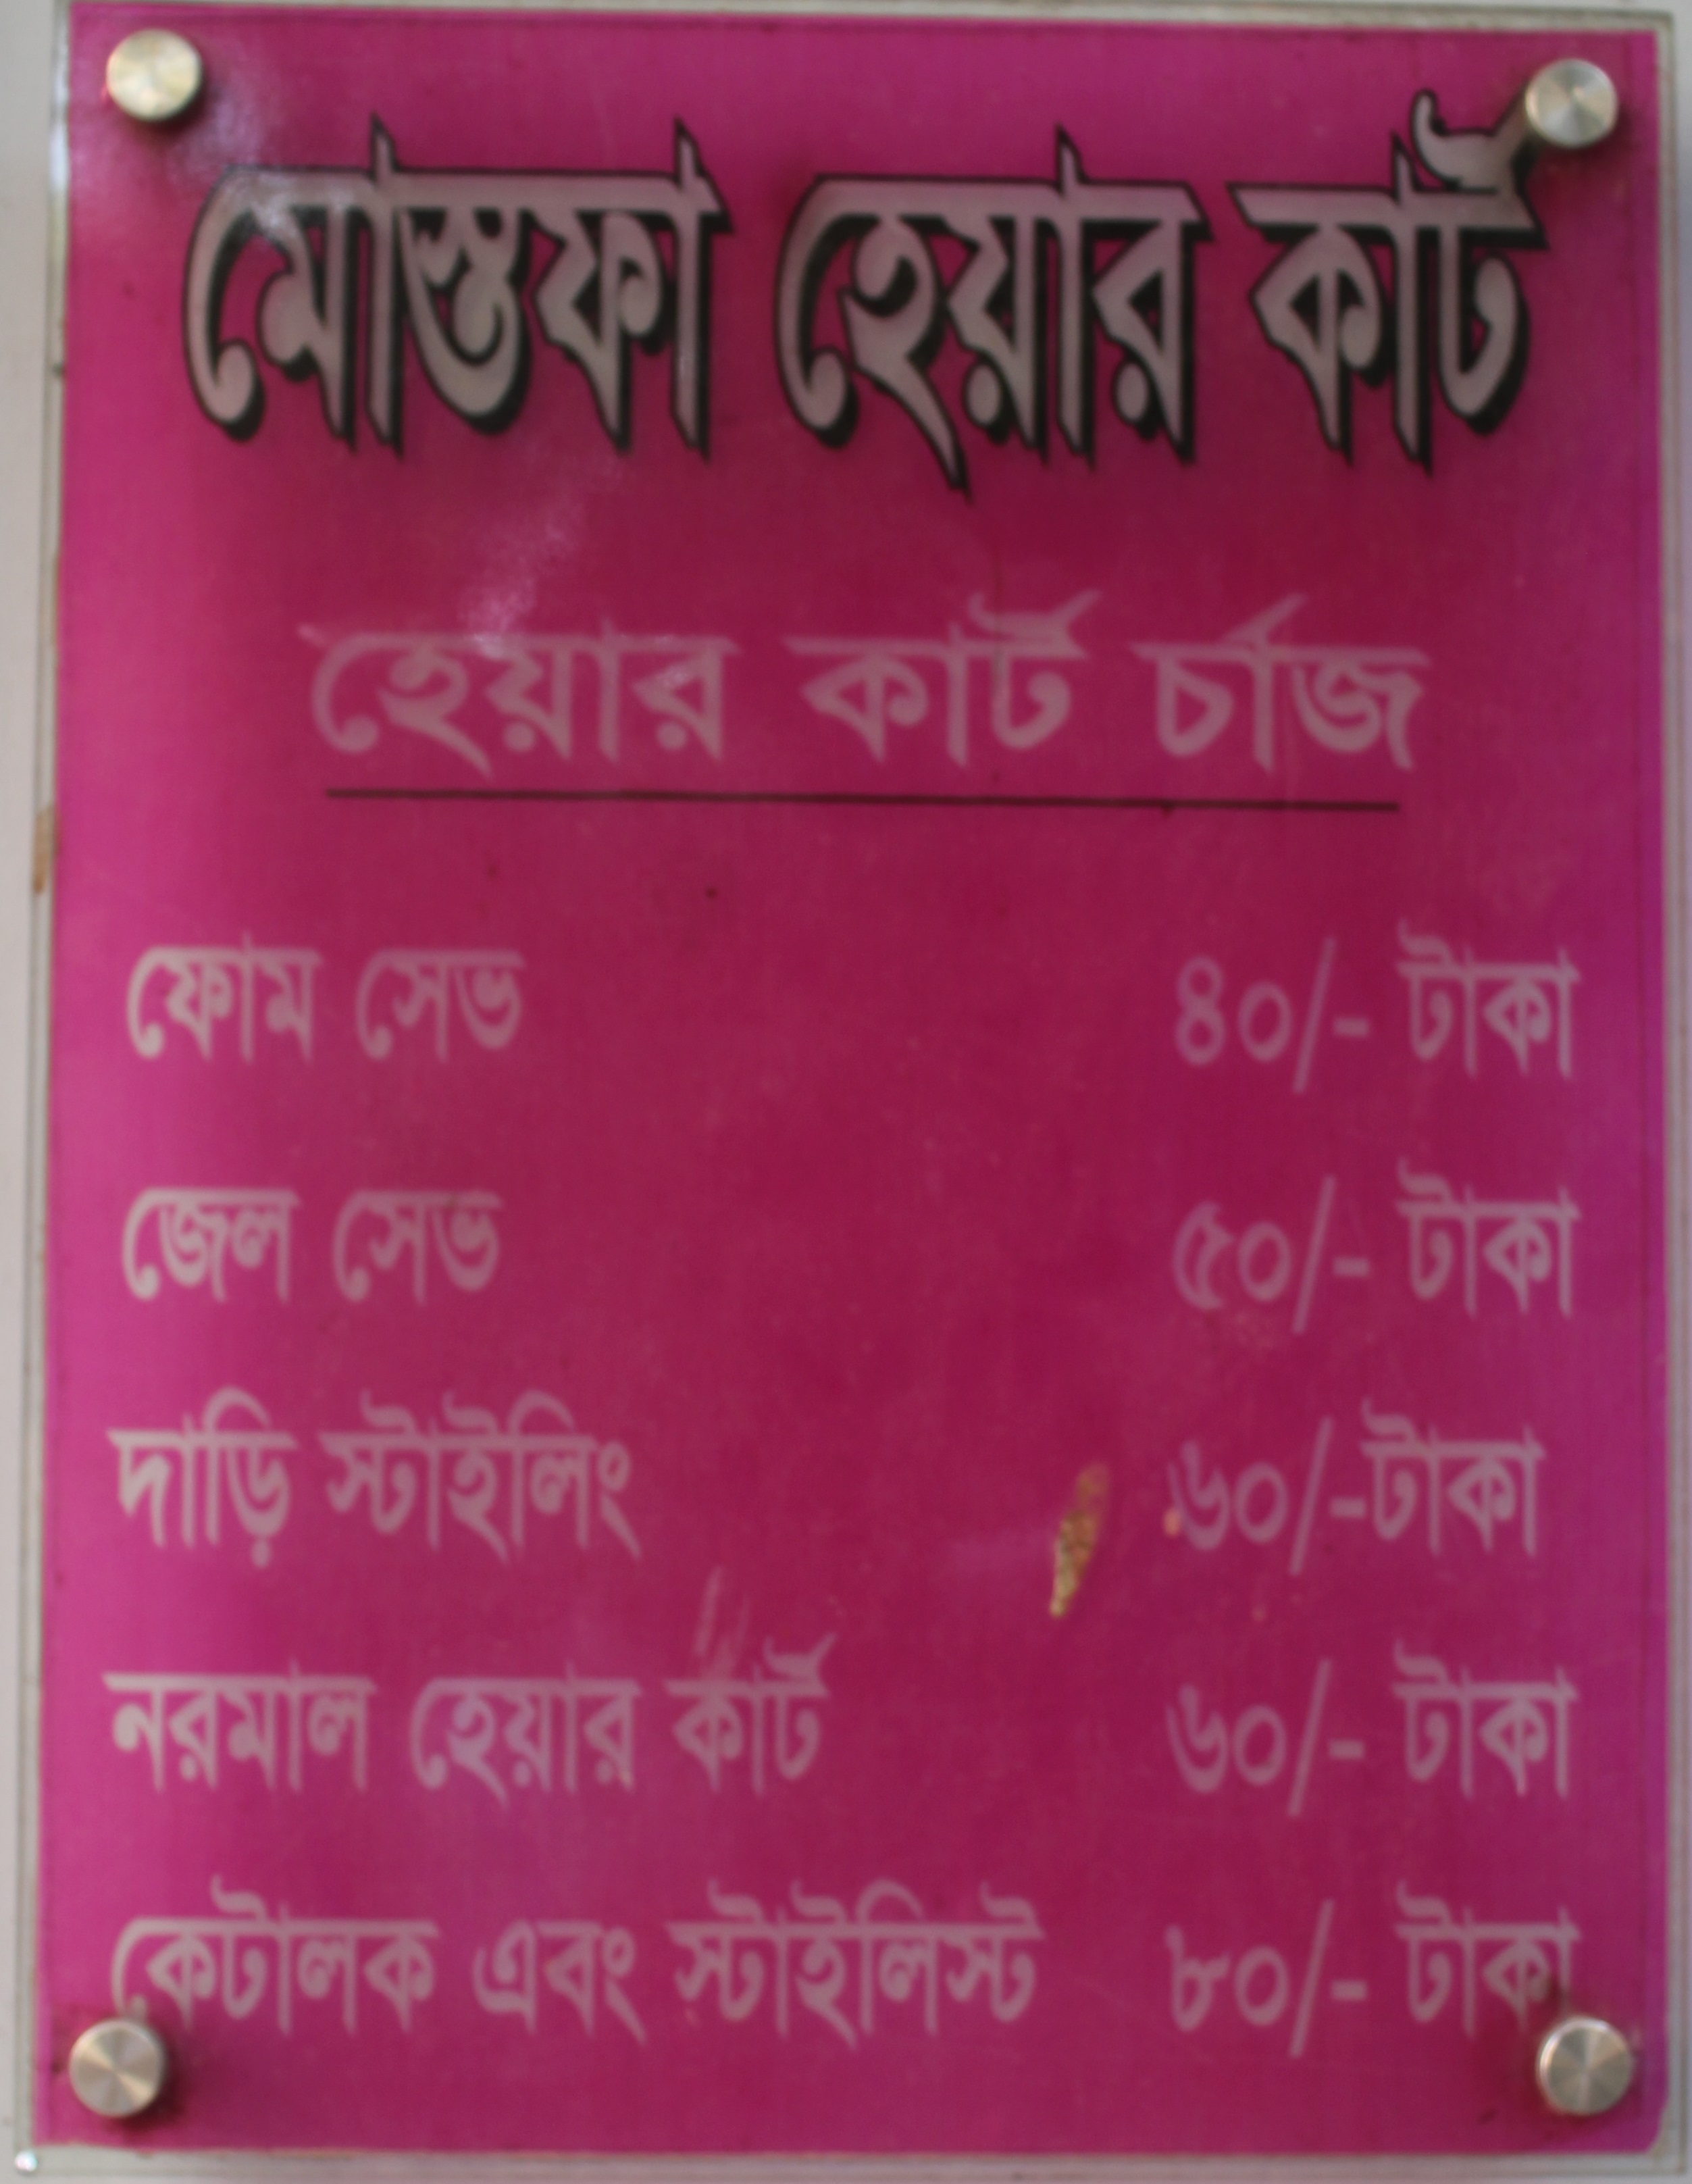 মোস্তফা হেয়ার কার্ট
হেয়ার কার্ট চার্জ
ফোম সেভ ৪০/- টাকা
জেল সেভ ৫০/- টাকা
দাড়ি স্টাইলিং ৬০/-টাকা
নরমাল হেয়ার কার্ট ৬০/- টাকা
কেটালক এবং স্টাইলিস্ট ৮০/- টাকা